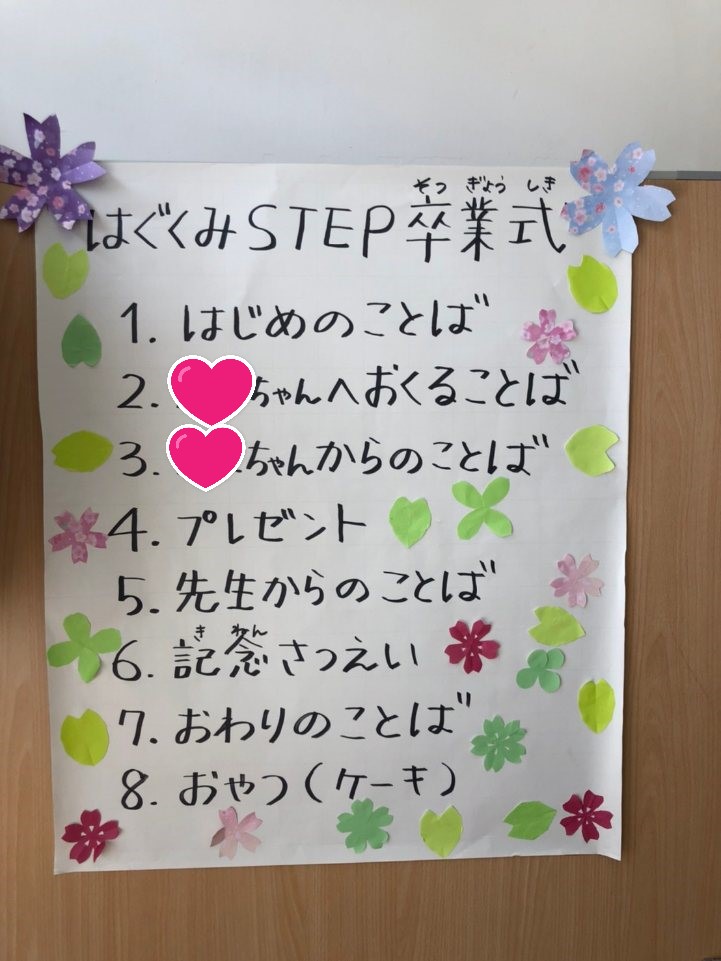 そつ ぎょう しき
はぐくみSTEP卒業式
1. はじめのことば
2. ちゃんへおくることば
3. ちゃんからのことば
4. プレゼント
5. 先生からのことば
き ねん
6. 記念さつえい
7. おわりのことば
8. おやつ(ケーキ)